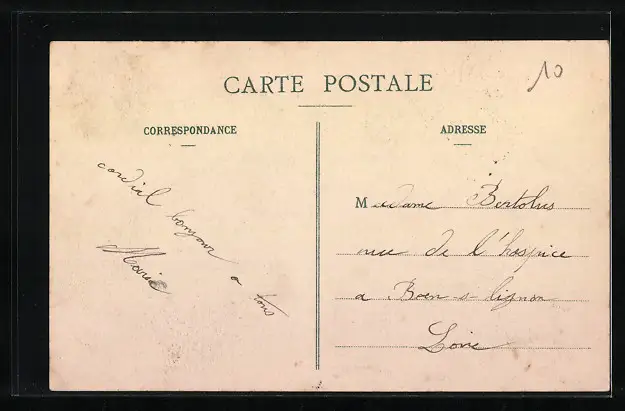 10
CARTE POSTALE
CORRESPONDANCE
cordial bonjour a tous
Marie
ADRESSE
Madame Bertolus
rue de l'hospice
a Boen-s-lignon
Loire